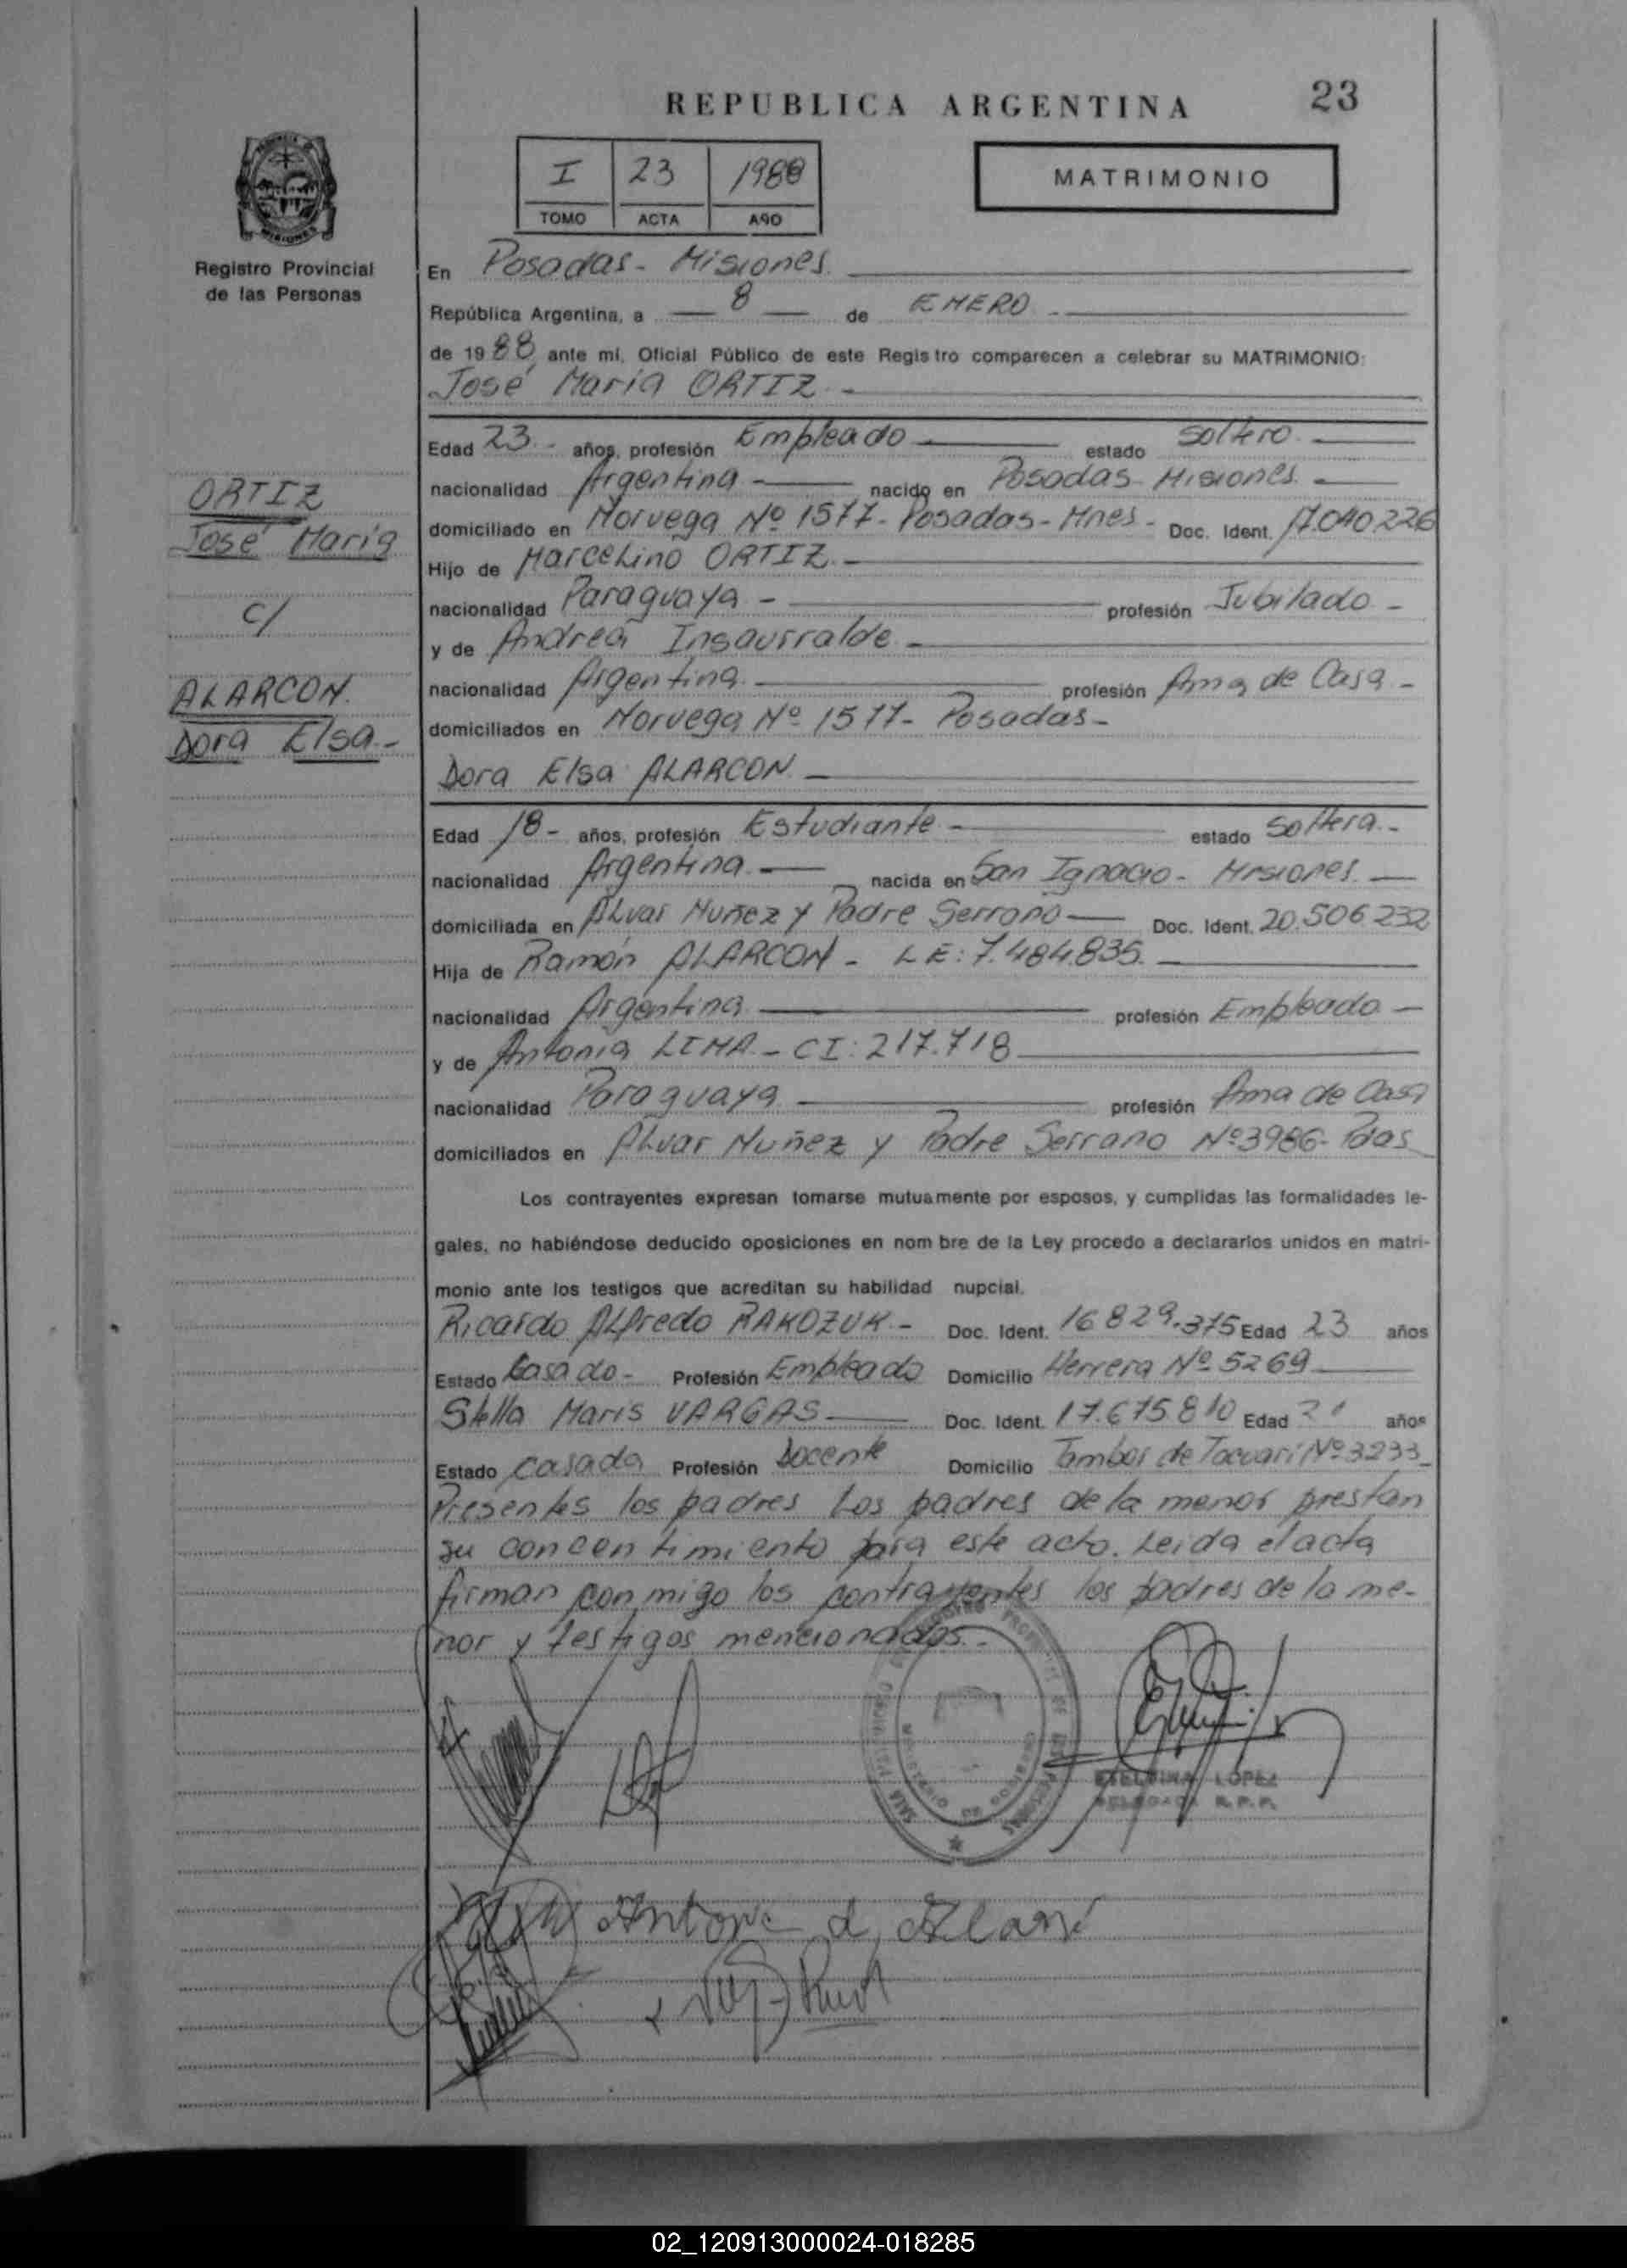 REPUBLICA ARGENTINA
23
I 23 1988
TOMO ACTA AÑO
MATRIMONIO
MISIONES
Registro Provincial
de las Personas
En Posadas - Misiones.
República Argentina, a 8 de ENERO
de 1988, ante mí, Oficial Público de este Registro comparecen a celebrar su MATRIMONIO:
José María ORTIZ
Edad 23 años, profesión Empleado estado soltero
nacionalidad Argentina nacido en Posadas Misiones
domiciliado en Noruega Nº 1577 - Posadas - Mnes - Doc. Ident. 17.040.226
Hijo de Marcelino ORTIZ
nacionalidad Paraguaya profesión Jubilado
y de Andrea Insaurralde
nacionalidad Argentina profesión Ama de Casa
domiciliados en Noruega Nº 1577 - Posadas -
ORTIZ
José María
c/
ALARCON
Dora Elsa.-
Dora Elsa ALARCON
Edad 18 - años, profesión Estudiante estado soltera
nacionalidad Argentina nacida en San Ignacio - Misiones
domiciliada en Alvar Nuñez y Padre Serrano Doc. Ident. 20.506.232
Hija de Ramón ALARCON - LE: 7.484.835
nacionalidad Argentina profesión Empleado
y de Antonia LIMA - CI: 217.718
nacionalidad Paraguaya profesión Ama de Casa
domiciliados en Alvar Nuñez y Padre Serrano Nº 3986 - Pdas
Los contrayentes expresan tomarse mutuamente por esposos, y cumplidas las formalidades le-
gales, no habiéndose deducido oposiciones en nombre de la Ley procedo a declararlos unidos en matri-
monio ante los testigos que acreditan su habilidad nupcial.
Ricardo Alfredo RAKOZUK - Doc. Ident. 16.829.375 Edad 23 años
Estado Casado - Profesión Empleado Domicilio Herrera Nº 5269
Stella Maris VARGAS Doc. Ident. 17.675.810 Edad 21 años
Estado casada Profesión Docente Domicilio Tambor de Tacuari Nº 3233
Presentes los padres Los padres de la menor prestan
su concentimiento para este acto. Leida el acta
firman con migo los contrayentes los padres de la me-
nor y testigos mencionados.-
LOPEZ
DELEGADA R.P.P.
02_120913000024-018285